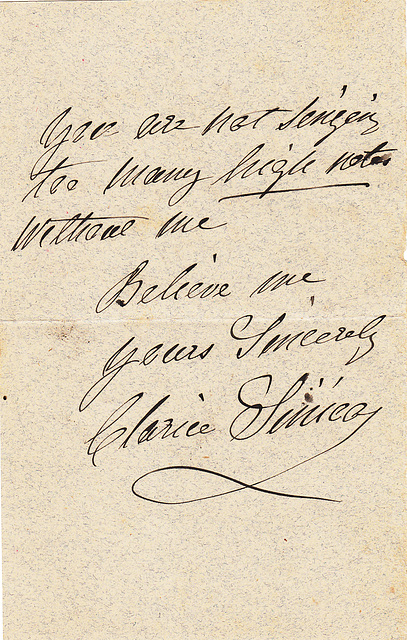 You are not singing
too many high notes
without me
Believe me
yours Sincerely
Clarice Sinico